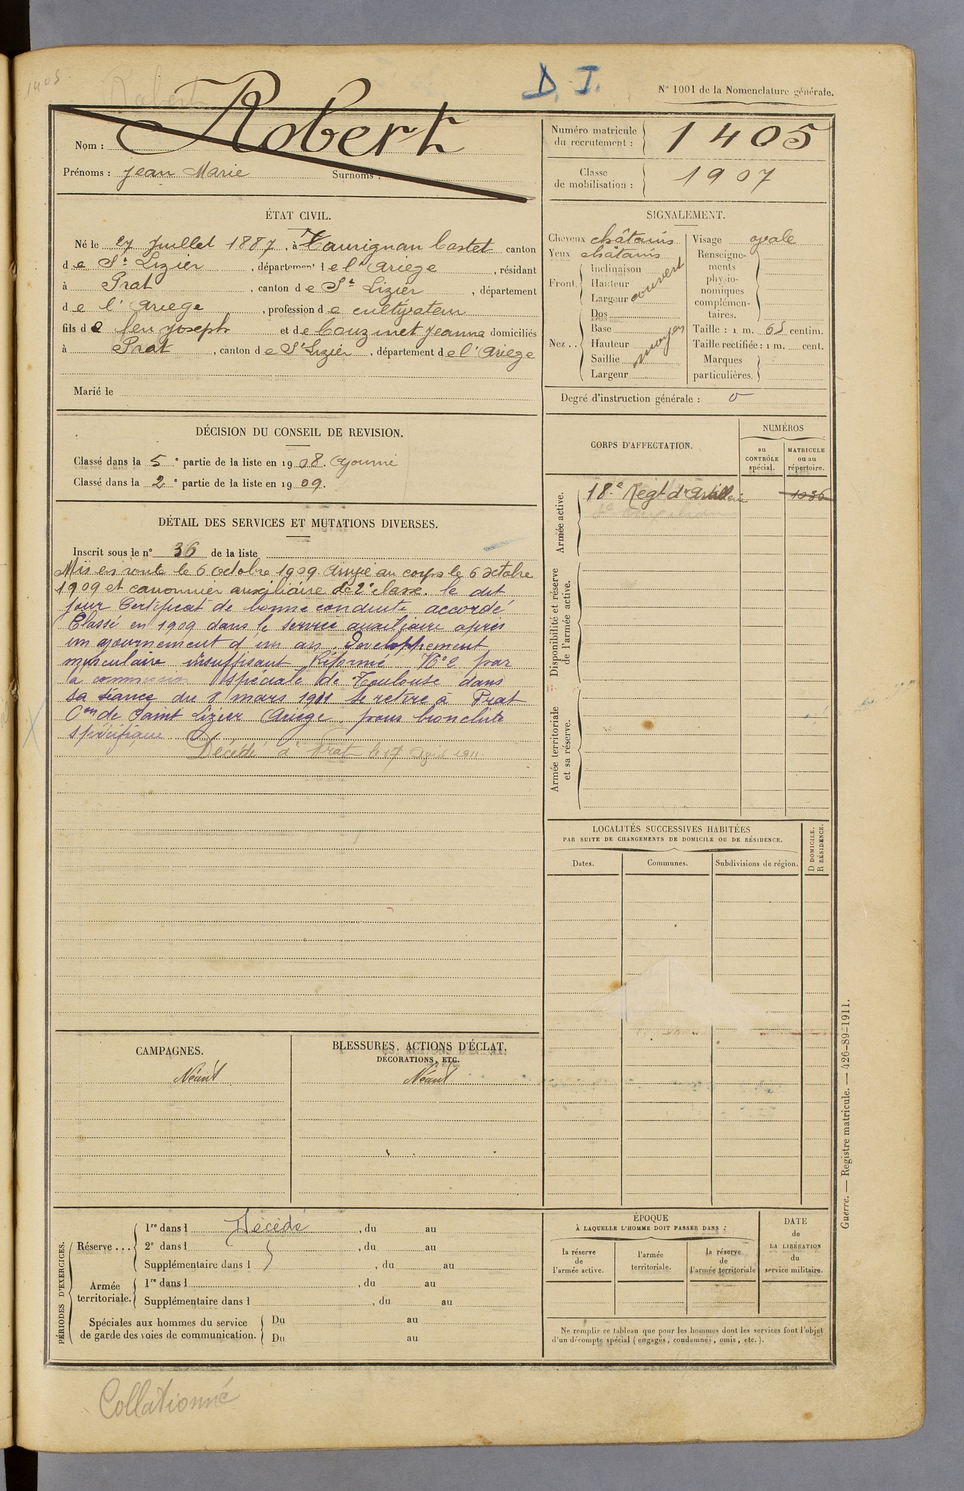 1405
Robert
D. I.
N° 1001 de la Nomenclature générale.
Nom : Robert
Prénoms : Jean Marie Surnoms :
Numéro matricule du recrutement : 1405
Classe de mobilisation : 1907
ÉTAT CIVIL.
Né le 27 Juillet 1887, à Taurignan Castet canton
de St Lizier, département de l'Ariège, résidant
à Prat, canton de St Lizier, département
de l'Ariege, profession de cultivateur
fils de feu Joseph et de Couzinet Jeanne domiciliés
à Prat, canton de St Lizier, département de l'Ariege
Marié le
SIGNALEMENT.
Cheveux châtains
Yeux châtains
Front. Inclinaison
Hauteur couvert
Largeur
Nez .. Dos
Base
Hauteur moyen
Saillie
Largeur
Visage ovale
Renseignements physionomiques complémentaires.
Taille : 1 m. 65 centim.
Taille rectifiée : 1 m. cent.
Marques particulières.
Degré d'instruction générale : 0
DÉCISION DU CONSEIL DE REVISION.
Classé dans la 5e partie de la liste en 1908. Ajourné
Classé dans la 2e partie de la liste en 1909.
DÉTAIL DES SERVICES ET MUTATIONS DIVERSES.
Inscrit sous le n° 36 de la liste
Mis en route le 6 octobre 1909. Arrivé au corps le 6 octobre
1909 et canonnier auxiliaire de 2e classe. le dit
jour Certificat de bonne conduite accordé
Classé en 1909 dans le service auxiliaire après
un ajournement d'un an. Développement
musculaire insuffisant Réformé N° 2 par
la commission spéciale de Toulouse dans
sa séance du 8 mars 1911 Se retire à Prat
Con de Saint Lizier Ariège, pour bronchite
spécifique
Décédé à Prat le 17 Avril 1911
CORPS D'AFFECTATION.
NUMÉROS
au CONTRÔLE spécial.
MATRICULE ou au répertoire.
Armée active.
18e Régt d'Artillerie 1036
Disponibilité et réserve de l'armée active.
Armée territoriale et sa réserve.
LOCALITÉS SUCCESSIVES HABITÉES
PAR SUITE DE CHANGEMENTS DE DOMICILE OU DE RÉSIDENCE.
Dates. Communes. Subdivisions de région.
D DOMICILE.
R RÉSIDENCE.
CAMPAGNES.
Néant
BLESSURES, ACTIONS D'ÉCLAT,
DÉCORATIONS, ETC.
Néant
PÉRIODES D'EXERCICES.
Réserve ... 1re dans l Décédé, du au
2e dans l, du au
Supplémentaire dans l, du au
Armée territoriale. 1re dans l, du au
Supplémentaire dans l, du au
Spéciales aux hommes du service de garde des voies de communication. Du au
Du au
ÉPOQUE
À LAQUELLE L'HOMME DOIT PASSER DANS :
la réserve de l'armée active.
l'armée territoriale.
la réserve de l'armée territoriale
DATE de LA LIBÉRATION du service militaire.
Ne remplir ce tableau que pour les hommes dont les services font l'objet
d'un décompte spécial (engagés, condamnés, omis, etc.).
Guerre. — Registre matricule. — 426-89-1911.
Collationné